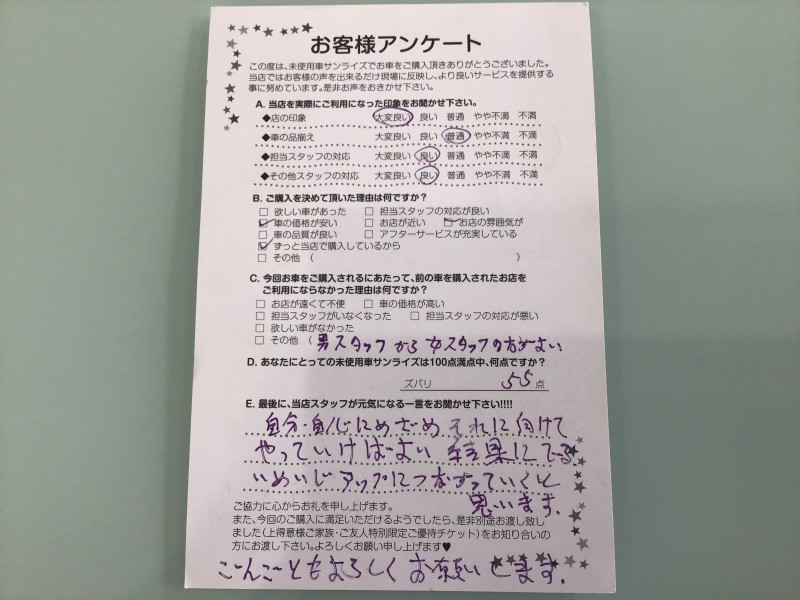 お客様アンケート
この度は、未使用車サンライズでお車をご購入頂きありがとうございました。
当店ではお客様の声を出来るだけ現場に反映し、より良いサービスを提供する
事に努めています。是非お声をおきかせ下さい。
A. 当店を実際にご利用になった印象をお聞かせ下さい。
◆店の印象 大変良い 良い 普通 やや不満 不満
◆車の品揃え 大変良い 良い 普通 やや不満 不満
◆担当スタッフの対応 大変良い 良い 普通 やや不満 不満
◆その他スタッフの対応 大変良い 良い 普通 やや不満 不満
B. ご購入を決めて頂いた理由は何ですか？
□ 欲しい車があった □ 担当スタッフの対応が良い
☑ 車の価格が安い □ お店が近い ☑ お店の雰囲気が
□ 車の品質が良い □ アフターサービスが充実している
☑ ずっと当店で購入しているから
□ その他 （ ）
C. 今回お車をご購入されるにあたって、前の車を購入されたお店を
ご利用にならなかった理由は何ですか？
□ お店が遠くて不便 □ 車の価格が高い
□ 担当スタッフがいなくなった □ 担当スタッフの対応が悪い
□ 欲しい車がなかった
□ その他 （ 男スタッフから女スタッフの方がよい
D. あなたにとっての未使用車サンライズは100点満点中、何点ですか？
ズバリ 55 点
E. 最後に、当店スタッフが元気になる一言をお聞かせ下さい!!!!
自分・自心にめざめ それに向けて
やっていけばよい 結果にでる
いめいじアップにつながっていくと
思います。
ご協力に心からお礼を申し上げます。
また、今回のご購入に満足いただけるようでしたら、是非別途お渡し致し
ました（上得意様ご家族・ご友人特別限定ご優待チケット）をお知り合いの
方にお渡し下さい。よろしくお願い申し上げます♥
こんごともよろしくお願いします。